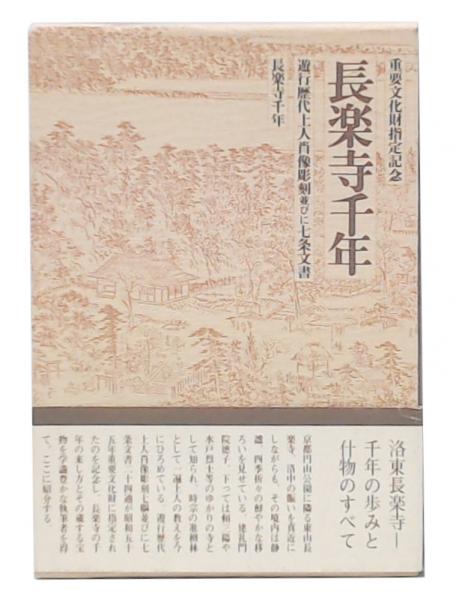 重要文化財指定記念
長楽寺千年
遊行歴代上人肖像彫刻並びに七条文書
長楽寺千年
洛東長楽寺―
千年の歩みと
什物のすべて
京都円山公園に隣る東山長
楽寺。洛中の賑いを真近に
しながらも、その境内は静
謐、四季折々の鮮やかな移
ろいを見せている。建礼門
院徳子、下っては頼三陽や
水戸烈士等のゆかりの寺と
して知られ、時宗の准檀林
として一遍上人の教えを今
にひろめている。遊行歴代
上人肖像彫刻七軀並びに七
条文書三十四通が昭和五十
五年重要文化財に指定され
たのを記念し、長楽寺の千
年の来し方とその蔵する宝
物を学識豊かな執筆者を得
て、ここに紹介する。